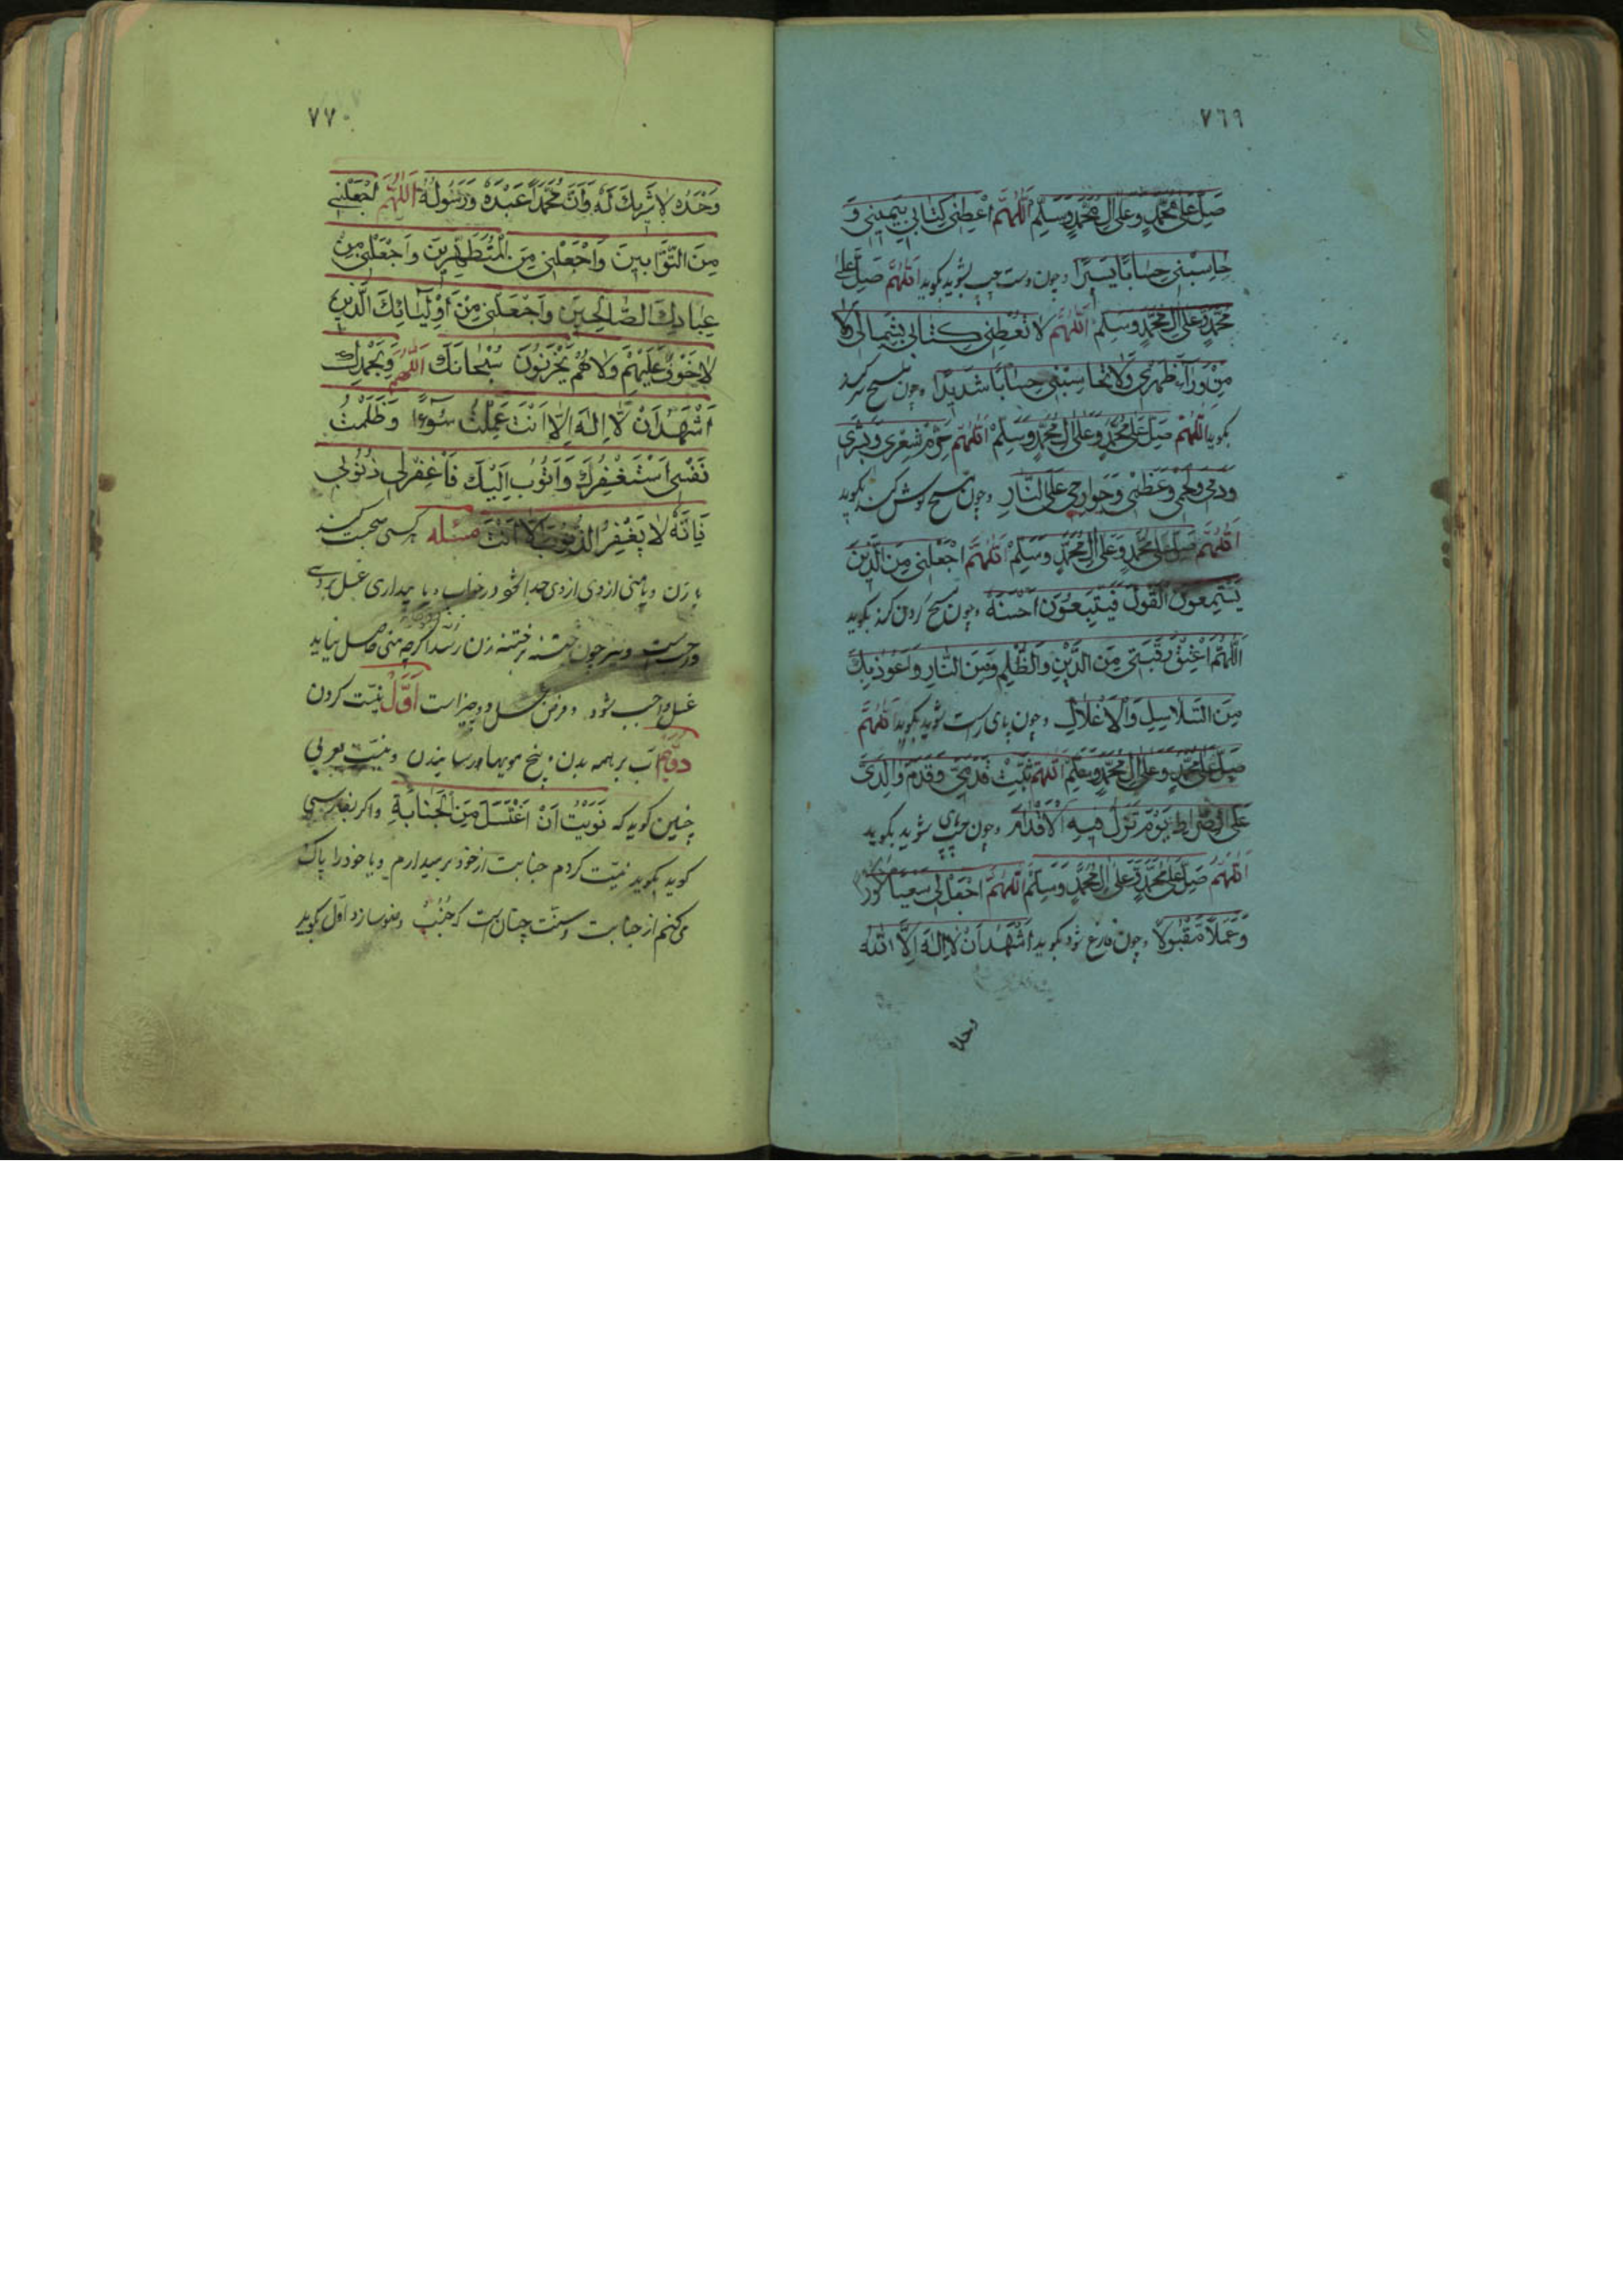 ٧٦٩
صَلِّ عَلٰى مُحَمَّدٍ وَعَلٰى اٰلِ مُحَمَّدٍ وَسَلِّمْ اَللّٰهُمَّ اَعْطِنِي كِتَابِي بِيَمِيْنِي وَ
حَاسِبْنِي حِسَابًا يَسِيْرًا و چون دست چپ بشوید بگوید اَللّٰهُمَّ صَلِّ عَلٰى
مُحَمَّدٍ وَعَلٰى اٰلِ مُحَمَّدٍ وَسَلِّمْ اَللّٰهُمَّ لَا تُعْطِنِي كِتَابِي بِشِمَالِي وَلَا
مِنْ وَرَاءِ ظَهْرِي وَلَا تُحَاسِبْنِي حِسَابًا شَدِيْدًا و چون مسح سر کند
بگوید اَللّٰهُمَّ صَلِّ عَلٰى مُحَمَّدٍ وَعَلٰى اٰلِ مُحَمَّدٍ وَسَلِّمْ اَللّٰهُمَّ حَرِّمْ شَعْرِي وَبَشَرِي
وَدَمِي وَلَحْمِي وَعَظْمِي وَجَوَارِحِي عَلَى النَّارِ و چون مسح گوش کند بگوید
اَللّٰهُمَّ صَلِّ عَلٰى مُحَمَّدٍ وَعَلٰى اٰلِ مُحَمَّدٍ وَسَلِّمْ اَللّٰهُمَّ اجْعَلْنِي مِنَ الَّذِيْنَ
يَسْتَمِعُوْنَ الْقَوْلَ فَيَتَّبِعُوْنَ اَحْسَنَهُ و چون مسح گردن کند بگوید
اَللّٰهُمَّ اَعْتِقْ رَقَبَتِي مِنَ الدَّيْنِ وَالظُّلْمِ وَمِنَ النَّارِ وَاَعُوْذُ بِكَ
مِنَ السَّلَاسِلِ وَالْاَغْلَالِ و چون پای راست شوید بگوید اَللّٰهُمَّ
صَلِّ عَلٰى مُحَمَّدٍ وَعَلٰى اٰلِ مُحَمَّدٍ وَسَلِّمْ اَللّٰهُمَّ ثَبِّتْ قَدَمِي وَقَدَمَ وَالِدَيَّ
عَلَى الصِّرَاطِ يَوْمَ تَزِلُّ فِيْهِ الْاَقْدَامُ و چون پای چپ شوید بگوید
اَللّٰهُمَّ صَلِّ عَلٰى مُحَمَّدٍ وَعَلٰى اٰلِ مُحَمَّدٍ وَسَلِّمْ اَللّٰهُمَّ اجْعَلْ لِي سَعْيًا مَشْكُوْرًا
وَعَمَلًا مَقْبُوْلًا و چون فارغ شود بگوید اَشْهَدُ اَنْ لَا اِلٰهَ اِلَّا اللّٰهُ
وحده
٧٧٠
وَحْدَهُ لَا شَرِيْكَ لَهُ وَاَنَّ مُحَمَّدًا عَبْدُهُ وَرَسُوْلُهُ اَللّٰهُمَّ اجْعَلْنِي
مِنَ التَّوَّابِيْنَ وَاجْعَلْنِي مِنَ الْمُتَطَهِّرِيْنَ وَاجْعَلْنِي مِنْ
عِبَادِكَ الصَّالِحِيْنَ وَاجْعَلْنِي مِنْ اَوْلِيَائِكَ الَّذِيْنَ
لَا خَوْفٌ عَلَيْهِمْ وَلَا هُمْ يَحْزَنُوْنَ سُبْحَانَكَ اللّٰهُمَّ وَبِحَمْدِكَ
اَشْهَدُ اَنْ لَا اِلٰهَ اِلَّا اَنْتَ عَمِلْتُ سُوْءًا وَظَلَمْتُ
نَفْسِي اَسْتَغْفِرُكَ وَاَتُوْبُ اِلَيْكَ فَاغْفِرْ لِي ذُنُوْبِي
فَاِنَّهُ لَا يَغْفِرُ الذُّنُوْبَ اِلَّا اَنْتَ مسئله کسی صحبت کند
با زن و یا منی از وی جدا شود در خواب و یا بیداری غسل بر وی
واجب است و نیز چون ختنه بر ختنه زن رسد اگرچه منی حاصل نیاید
غسل واجب شود و فرض غسل دو چیز است اَوَّلْ نیّت کردن
دوّم آب بر همه بدن و بیخ مویها رسانیدن و نیّت بعربی
چنین گوید که نَوَيْتُ اَنْ اَغْتَسِلَ مِنَ الْجَنَابَةِ و اگر بفارسی
گوید بگوید نیّت کردم جنابت از خود بر میدارم و یا خود را پاک
می‌کنم از جنابت و سنّت چنان است که جُنُبْ وضو سازد اوّل بگوید